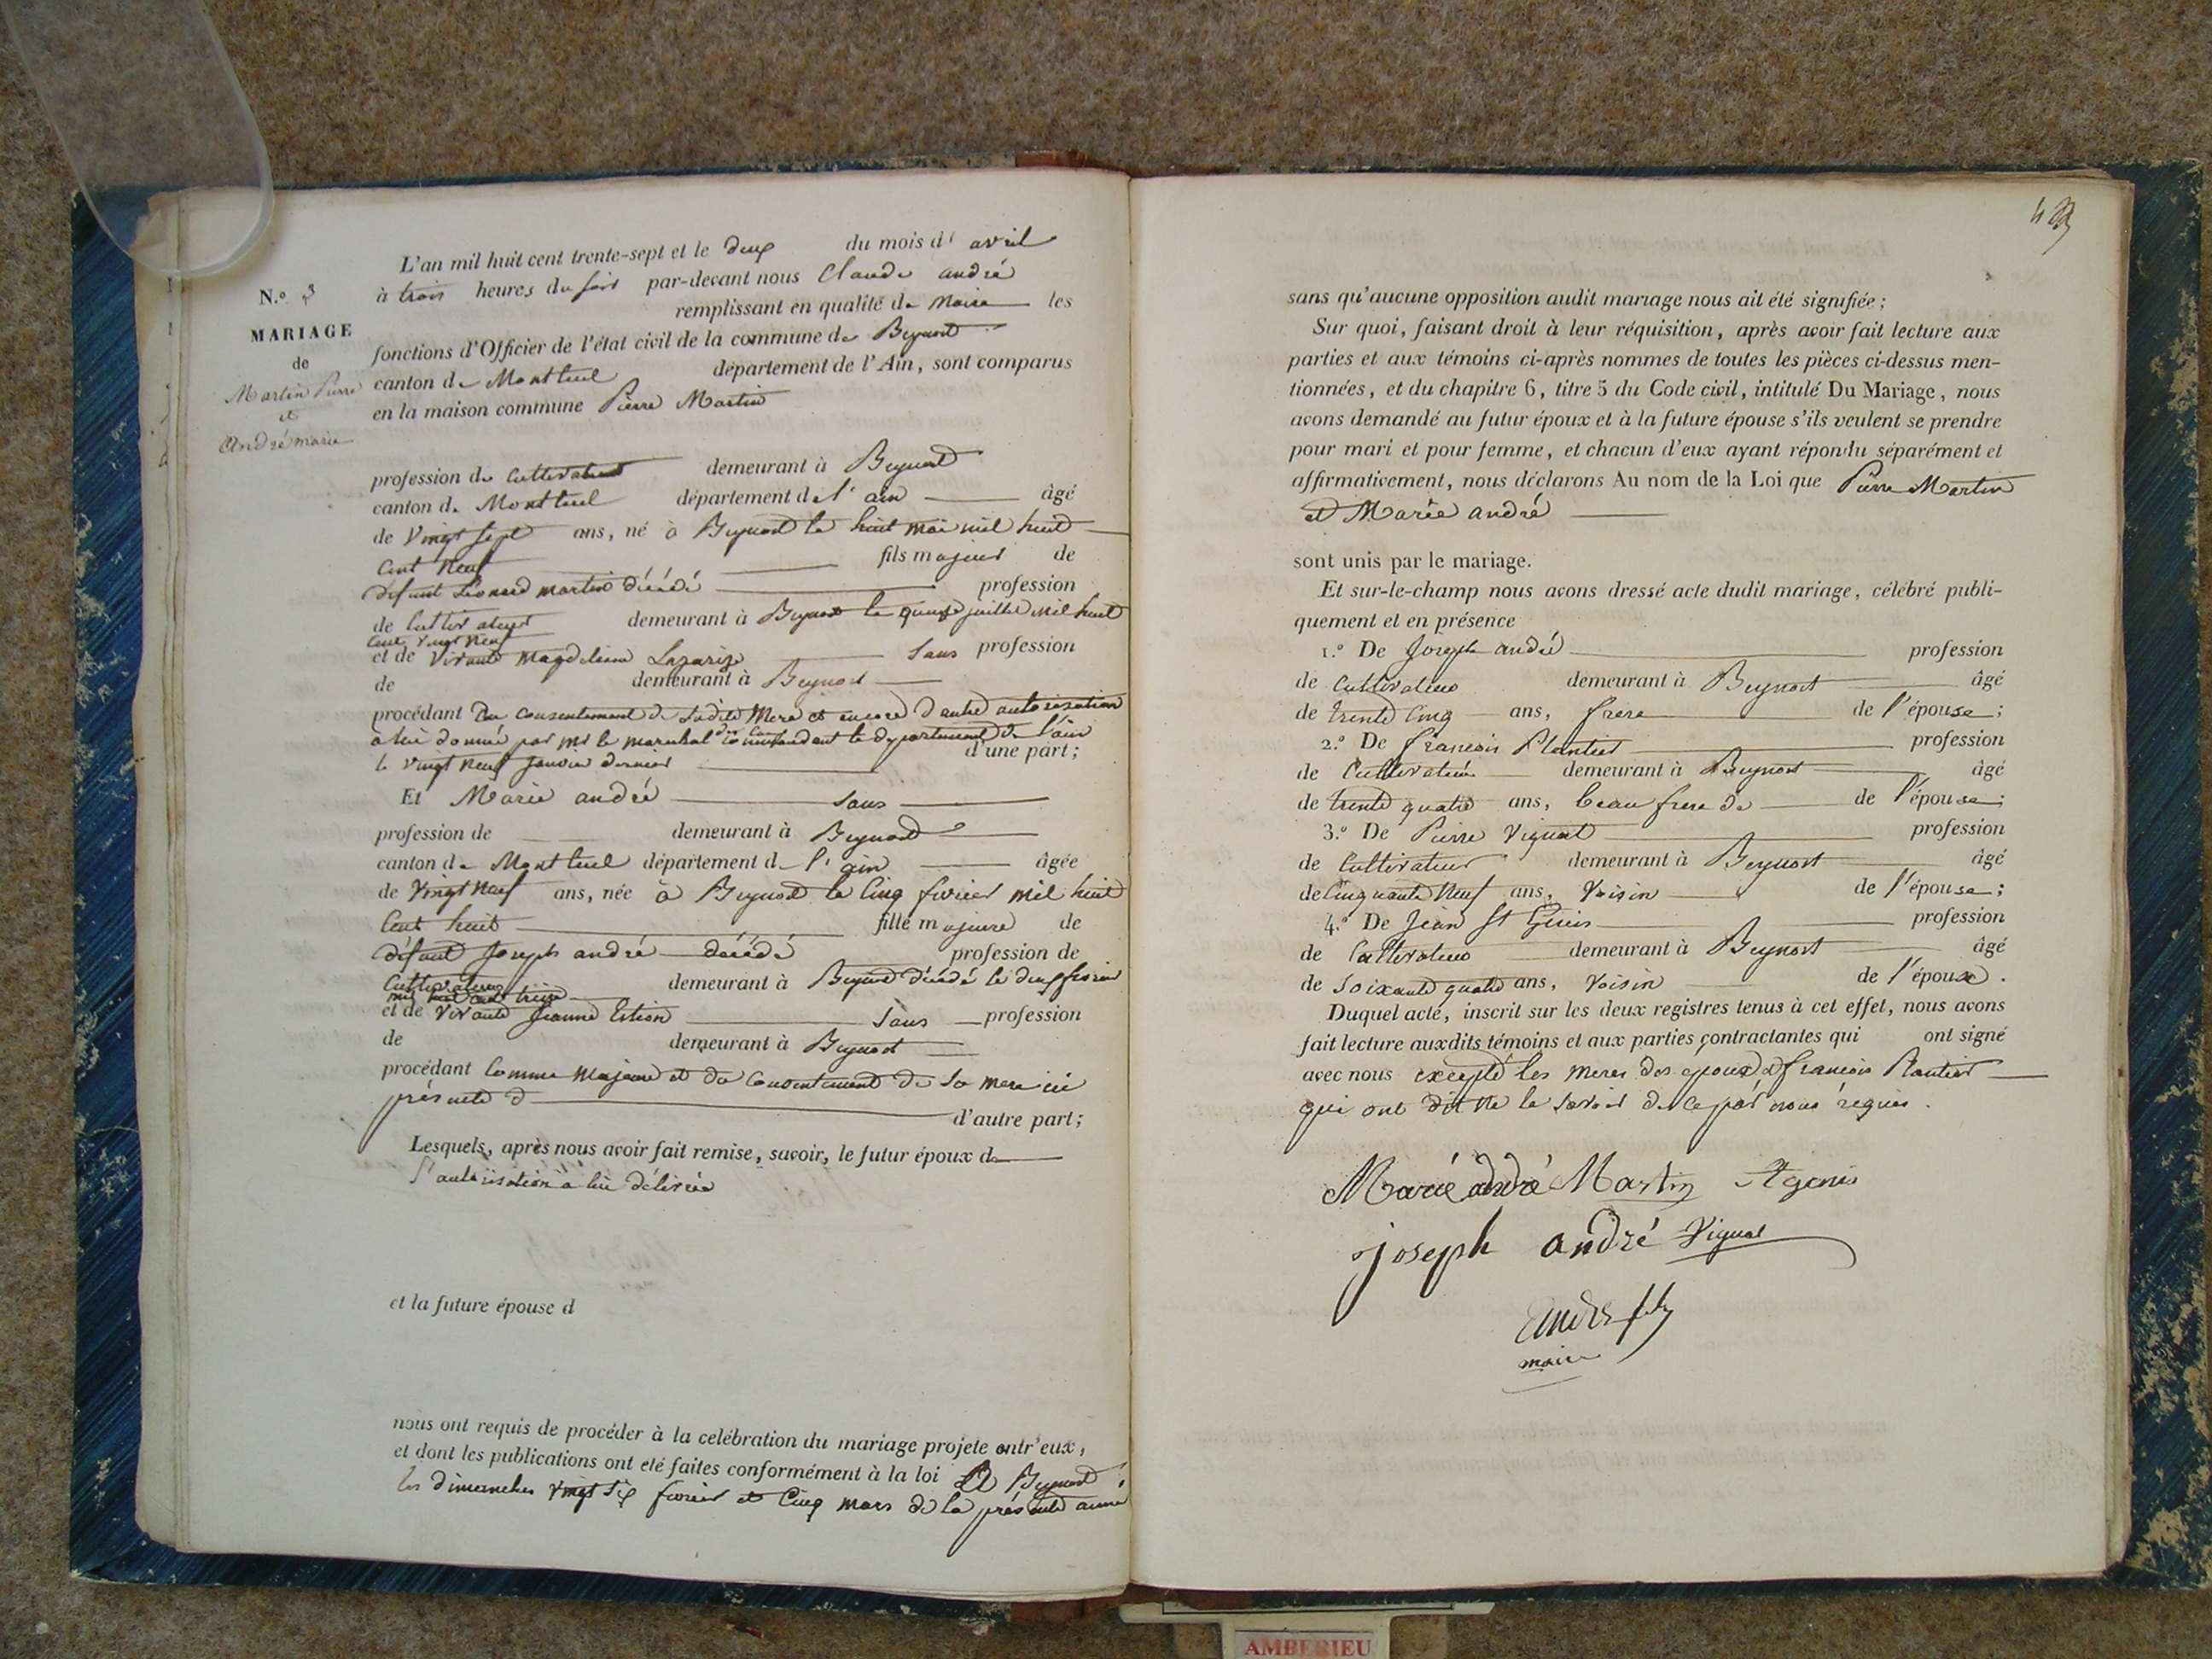 N.o 3
MARIAGE
de
Martin Pierre
et
André marie
L'an mil huit cent trente-sept et le deux du mois d' avril
à trois heures du soir par-devant nous Claude andré
remplissant en qualité de Maire les
fonctions d'Officier de l'état civil de la commune de Beynost
canton de Montluel département de l'Ain, sont comparus
en la maison commune Pierre Martin
profession de Cultivateur demeurant à Beynost
canton de Montluel département de l' ain âgé
de Vingt sept ans, né à Beynost le huit mai mil huit
Cent Neuf fils majeur de
défunt Léonard martin décédé profession
de Cultivateur demeurant à Beynost le quinze juillet mil huit
Cent vingt neuf
et de Vivante Magdeleine Sans profession
de demeurant à Beynost
procédant Du Consentement de Ladite Mere et encore d'autre autorisation
à lui donnée par Mr le marechal de Camp Commandant le département de l'ain
le vingt neuf janvier dernier d'une part;
Et Marie andré Sans
profession de demeurant à Beynost
canton de Montluel département de l' ain âgée
de Vingt neuf ans, née à Beynost le Cinq fevrier mil huit
Cent huit fille majeure de
défunt Joseph andré décédé profession de
Cultivateur demeurant à Beynost décédé le deux fevrier
mil huit cent treize
et de Vivante Jeanne Sans profession
de demeurant à Beynost
procédant Comme Majeure et du Consentement de Sa mere ici
présente d d'autre part;
Lesquels, après nous avoir fait remise, savoir, le futur époux de
l'autorisation à lui délivrée
et la future épouse d
nous ont requis de procéder à la celébration du mariage projete entr'eux,
et dont les publications ont eté faites conformément à la loi A Beynost
les dimanches vingt six fevrier et Cinq mars de la présente année
sans qu'aucune opposition audit mariage nous ait été signifiée;
Sur quoi, faisant droit à leur réquisition, après avoir fait lecture aux
parties et aux témoins ci-après nommes de toutes les pièces ci-dessus men-
tionnées, et du chapitre 6, titre 5 du Code civil, intitulé Du Mariage, nous
avons demandé au futur époux et à la future épouse s'ils veulent se prendre
pour mari et pour femme, et chacun d'eux ayant répondu séparément et
affirmativement, nous déclarons Au nom de la Loi que Pierre Martin
et Marie andré
sont unis par le mariage.
Et sur-le-champ nous avons dressé acte dudit mariage, célébré publi-
quement et en présence
1.o De Joseph andré profession
de Cultivateur demeurant à Beynost âgé
de trente Cinq ans, frere de l'épouse;
2.o De francois Plantier profession
de Cultivateur demeurant à Beynost âgé
de trente quatre ans, beau frere de de l'épouse;
3.o De Pierre Vignat profession
de Cultivateur demeurant à Beynost âgé
de Cinquante Neuf ans, Voisin de l'épouse;
4.o De Jean St Genis profession
de Cultivateur demeurant à Beynost âgé
de Soixante quatre ans, Voisin de l'époux.
Duquel acte, inscrit sur les deux registres tenus à cet effet, nous avons
fait lecture auxdits témoins et aux parties contractantes qui ont signé
avec nous excepté les meres des epoux et francois Plantier
qui ont dit ne le savoir de ce par nous requis.
Marie andré Martin St genis
joseph andré Vignat
André
maire
AMBERIEU